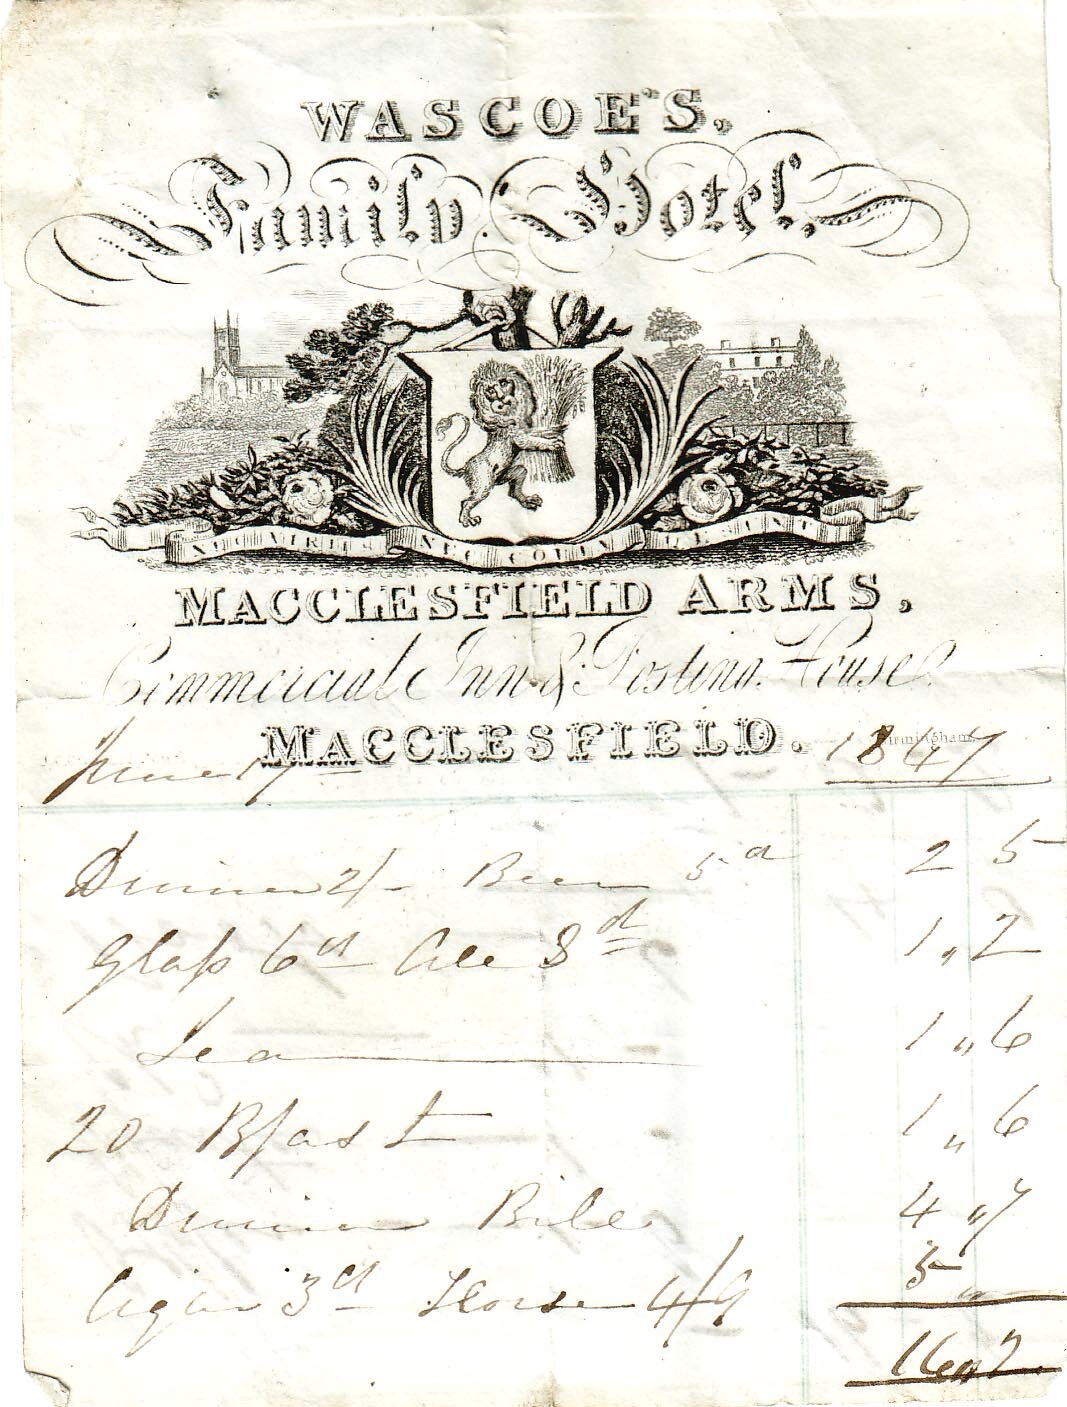 WASCOE'S,
Family Hotel,
NEC VIRTUS NEC COPIA DESUNT
MACCLESFIELD ARMS,
Commercial Inn & Posting House
MACCLESFIELD.
Birmingham
June 19 1847
Dinner 2/- Beer 5d 2 5
Glass 6d Ale 8d 1 " 2
Tea 1 " 6
20 Bfast 1 " 6
Dinner Bill 4 " 7
Cigar 3d Horse 4/9 5 "
16 " 2